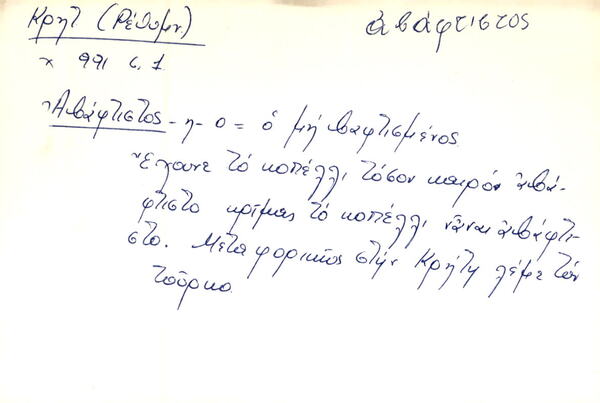 Κρητ (Ρέθυμν.)
ἀβάφτιστος
χ 991 σ. 1
Ἀβάφτιστος - η - ο = ὁ μή βαφτισμένος.
Ἔχουνε τό κοπέλλι τόσον καιρόν ἀβά-
φτιστο κρῖμας τό κοπέλλι νἆναι ἀβάφτι-
στο. Μεταφορικῶς στήν Κρήτη λέμε τόν
τοῦρκο.